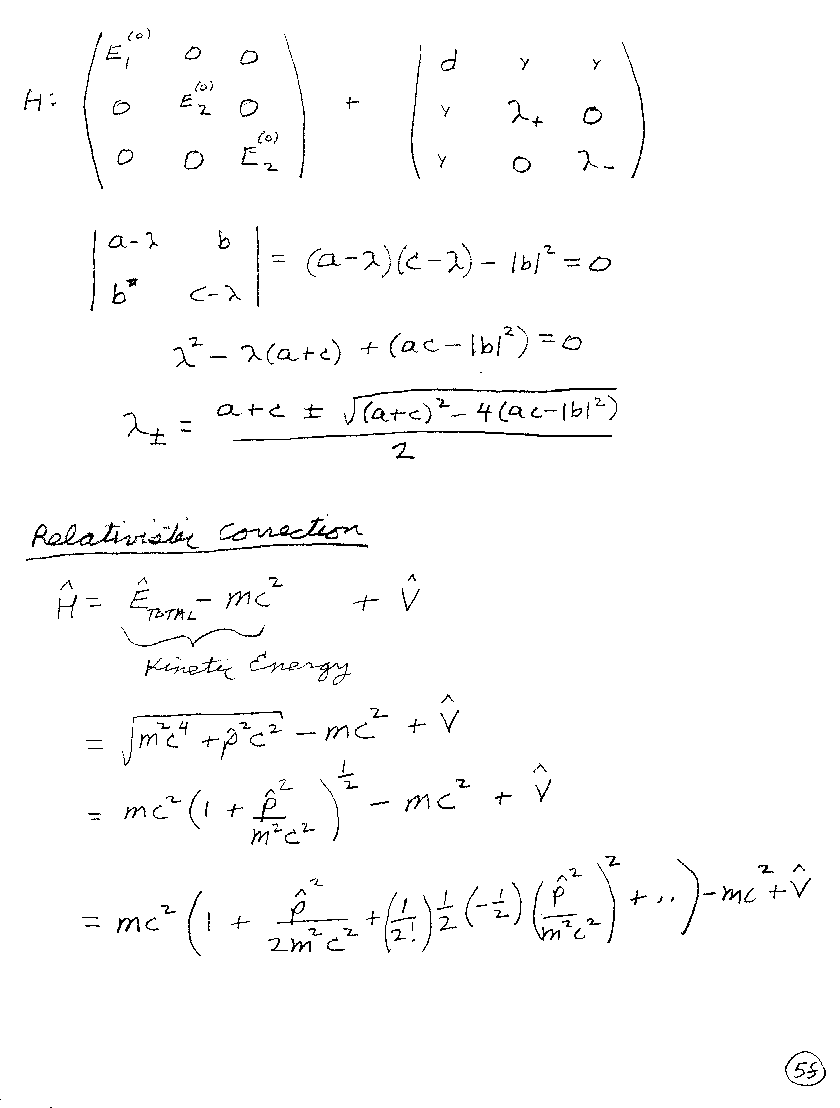 H: ( E₁⁽⁰⁾ 0 0 ; 0 E₂⁽⁰⁾ 0 ; 0 0 E₂⁽⁰⁾ ) + ( d γ γ ; γ λ₊ 0 ; γ 0 λ₋ )
| a-λ b ; b* c-λ | = (a-λ)(c-λ) - |b|² = 0
λ² - λ(a+c) + (ac-|b|²) = 0
λ± = (a+c ± √((a+c)² - 4(ac-|b|²))) / 2
Relativistic Correction
Ĥ = Ê_TOTAL - mc² + V̂
Kinetic Energy
= √(m²c⁴ + p̂²c²) - mc² + V̂
= mc² (1 + p̂²/m²c²)^½ - mc² + V̂
= mc² (1 + p̂²/2m²c² + (1/2!) ½ (-½) (p̂²/m²c²)² + ..) - mc² + V̂